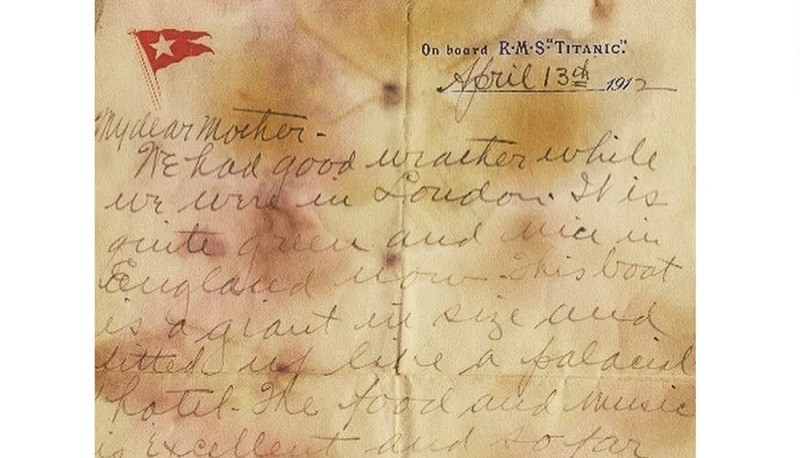 On board R·M·S "TITANIC."
April 13th 1912
My dear Mother -
We had good weather while
we were in London. It is
quite green and nice in
England now. This boat
is a giant in size and
fitted up like a palacial
hotel. The food and music
is excellent and so far